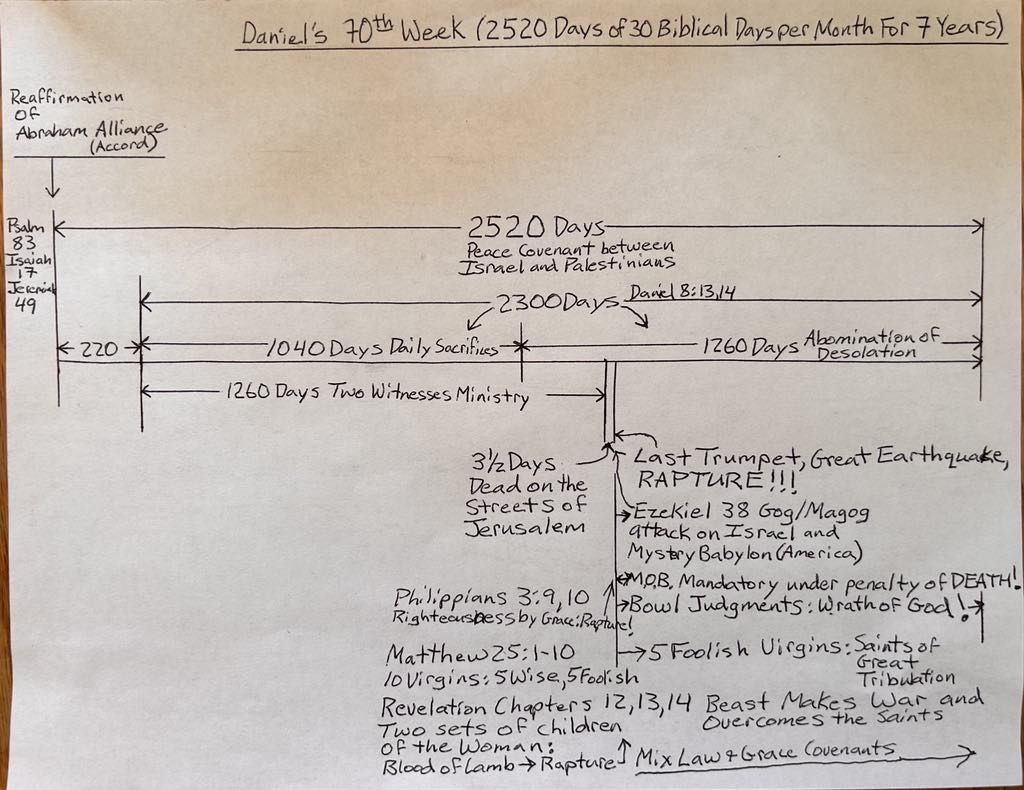 Daniel's 70th Week (2520 Days of 30 Biblical Days per Month For 7 Years)
Reaffirmation
Of
Abraham Alliance
(Accord)
Psalm
83
Isaiah
17
Jeremiah
49
2520 Days
Peace Covenant between
Israel and Palestinians
2300 Days Daniel 8:13,14
220
1040 Days Daily Sacrifices
1260 Days Abomination of
Desolation
1260 Days Two Witnesses Ministry
3½ Days
Dead on the
Streets of
Jerusalem
Last Trumpet, Great Earthquake,
RAPTURE!!!
Ezekiel 38 Gog/Magog
attack on Israel and
Mystery Babylon (America)
M.O.B. Mandatory under penalty of DEATH!
Bowl Judgments: Wrath of God!
Philippians 3:9,10
Righteousness by Grace: Rapture!
Matthew 25:1-10
10 Virgins: 5 Wise, 5 Foolish
5 Foolish Virgins: Saints of
Great
Tribulation
Revelation Chapters 12,13,14 Beast Makes War and
Overcomes the Saints
Two sets of children
of the Woman:
Blood of Lamb → Rapture
Mix Law & Grace Covenants